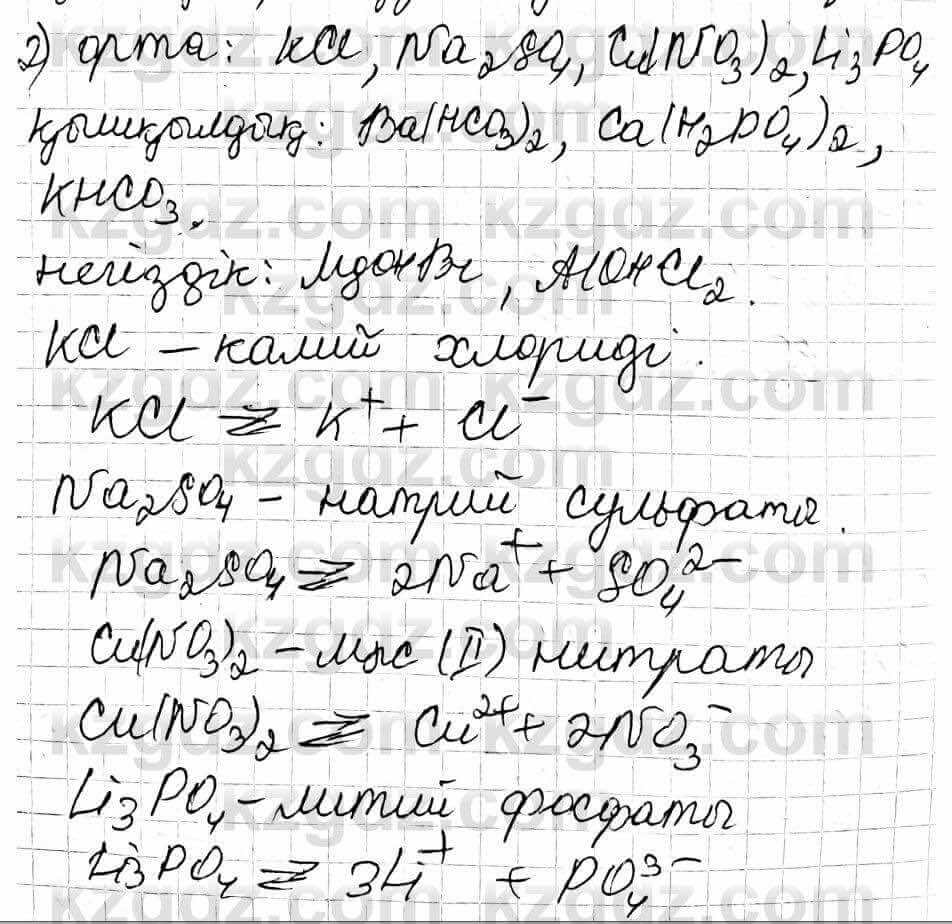 2) орта: KCl, Na₂SO₄, Cu(NO₃)₂, Li₃PO₄
қышқылдық: Ba(HCO₃)₂, Ca(H₂PO₄)₂,
KHCO₃.
негіздік: MgOHBr, AlOHCl₂.
KCl – калий хлориді.
KCl ⇄ K⁺ + Cl⁻
Na₂SO₄ – натрий сульфаты.
Na₂SO₄ ⇄ 2Na⁺ + SO₄²⁻
Cu(NO₃)₂ – мыс (II) нитраты
Cu(NO₃)₂ ⇄ Cu²⁺ + 2NO₃⁻
Li₃PO₄ – литий фосфаты
Li₃PO₄ ⇄ 3Li⁺ + PO₄³⁻